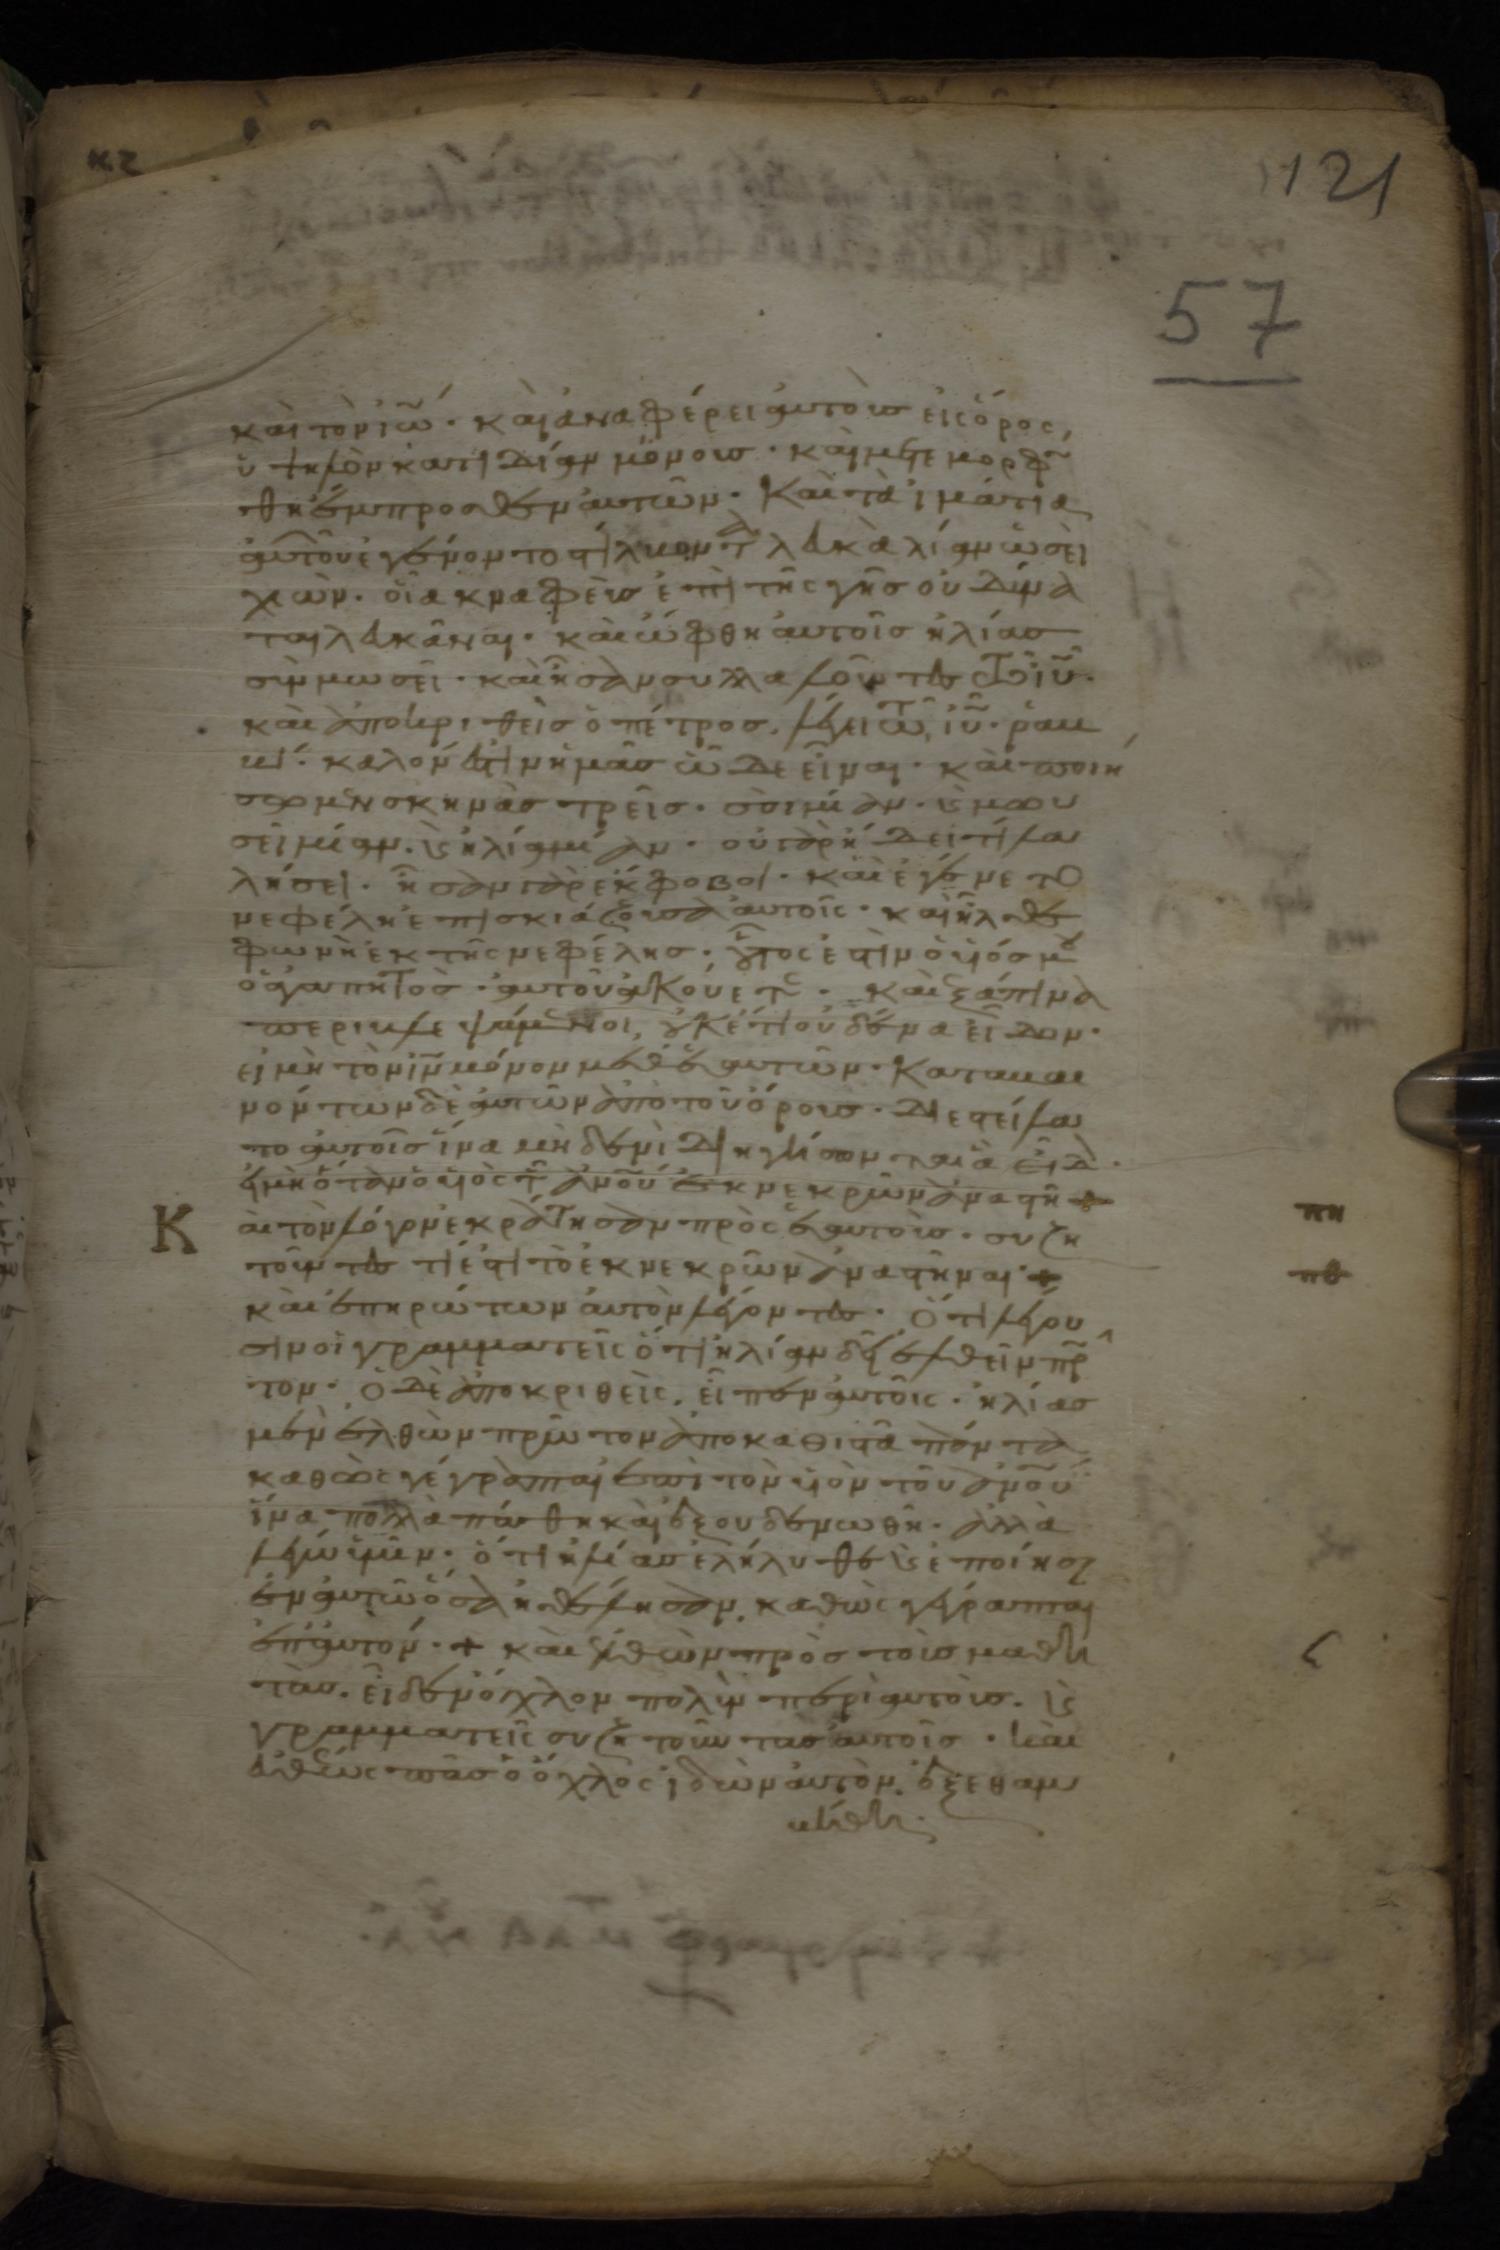 κζ
121
57
καὶ τὸν ἰω̅. καὶ ἀναφέρει αὐτοὺς εἰς ὄρος
ὑψηλὸν κατιδίαν μόνους. καὶ μετεμορφώ
θη ἔμπροσθεν αὐτῶν. Καὶ τὰ ἱμάτια
αὐτοῦ ἐγένοντο στίλβοντα λευκὰ λίαν ὡσεὶ
χιών. οἷα κναφεὺς ἐπὶ τῆς γῆς οὐ δύνα
ται λευκᾶναι. καὶ ὤφθη αὐτοῖς ἠλίας
σὺν μωσεῖ. καὶ ἦσαν συλλαλοῦντες τῶ ιυ̅.
καὶ ἀποκριθεὶς ὁ πέτρος. λέγει τῶ ιυ̅. ῥαβ
βί. καλόν ἐστιν ἡμᾶς ὧδε εἶναι. καὶ ποιή
σωμεν σκηνὰς τρεῖς. σοὶ μίαν. κ μωυ
σεῖ μίαν. κ ἠλία μίαν. οὐ γὰρ ἤδει τί λα
λήσει. ἦσαν γὰρ ἔκφοβοι. καὶ ἐγένετο
νεφέλη ἐπισκιάζουσα αὐτοῖς. καὶ ἦλθε
φωνὴ ἐκ τῆς νεφέλης. οὗτός ἐστιν ὁ υἱός μου
ὁ ἀγαπητὸς. αὐτοῦ ἀκούετε. καὶ ἐξάπινα
περιβλεψάμενοι, οὐκέτι οὐδένα εἶδον.
εἰ μὴ τὸν ιν̅ μόνον μεθ ἑαυτῶν. Καταβαι
νόντων δὲ αὐτῶν ἀπὸ τοῦ ὄρους. διεστείλα
το αὐτοῖς ἵνα μηδενὶ διηγήσωνται ἃ εἶδον.
εἰ μὴ ὅταν ὁ υἱὸς τοῦ ἀνου̅ ἐκ νεκρῶν ἀναστῆ +
Κ αὶ τὸν λόγον ἐκράτησαν πρὸς ἑαυτοὺς. συζη
τοῦντες τί ἐστι τὸ ἐκ νεκρῶν ἀναστῆναι. +
καὶ ἐπηρώτων αὐτὸν λέγοντες. Ὅτι λέγου
σιν οἱ γραμματεῖς ὅτι ἠλίαν δεῖ ἐλθεῖν πρῶ
τον. Ὁ δὲ ἀποκριθεὶς. εἶπεν αὐτοῖς. ἠλίας
μὲν ἐλθὼν πρῶτον ἀποκαθιστᾶ πάντα
καθὼς γέγραπται ἐπὶ τὸν υἱὸν τοῦ ἀνου̅
ἵνα πολλὰ πάθη καὶ ἐξουδενωθῆ. ἀλλὰ
λέγω ὑμῖν. ὅτι ἠλίας ἐλήλυθε κ ἐποίησαν
ἐν αὐτῶ ὅσα ἠθέλησαν. καθὼς γέγραπται
ἐπ αὐτόν. + καὶ ἐλθὼν πρὸς τοὺς μαθη
τὰς. εἶδεν ὄχλον πολὺν περὶ αὐτοὺς. κ
γραμματεῖς συζητοῦντας αὐτοῖς. καὶ
εὐθέως πᾶς ὁ ὄχλος ἰδὼν αὐτὸν. ἐξεθαμ
βήθη.
πη
πθ